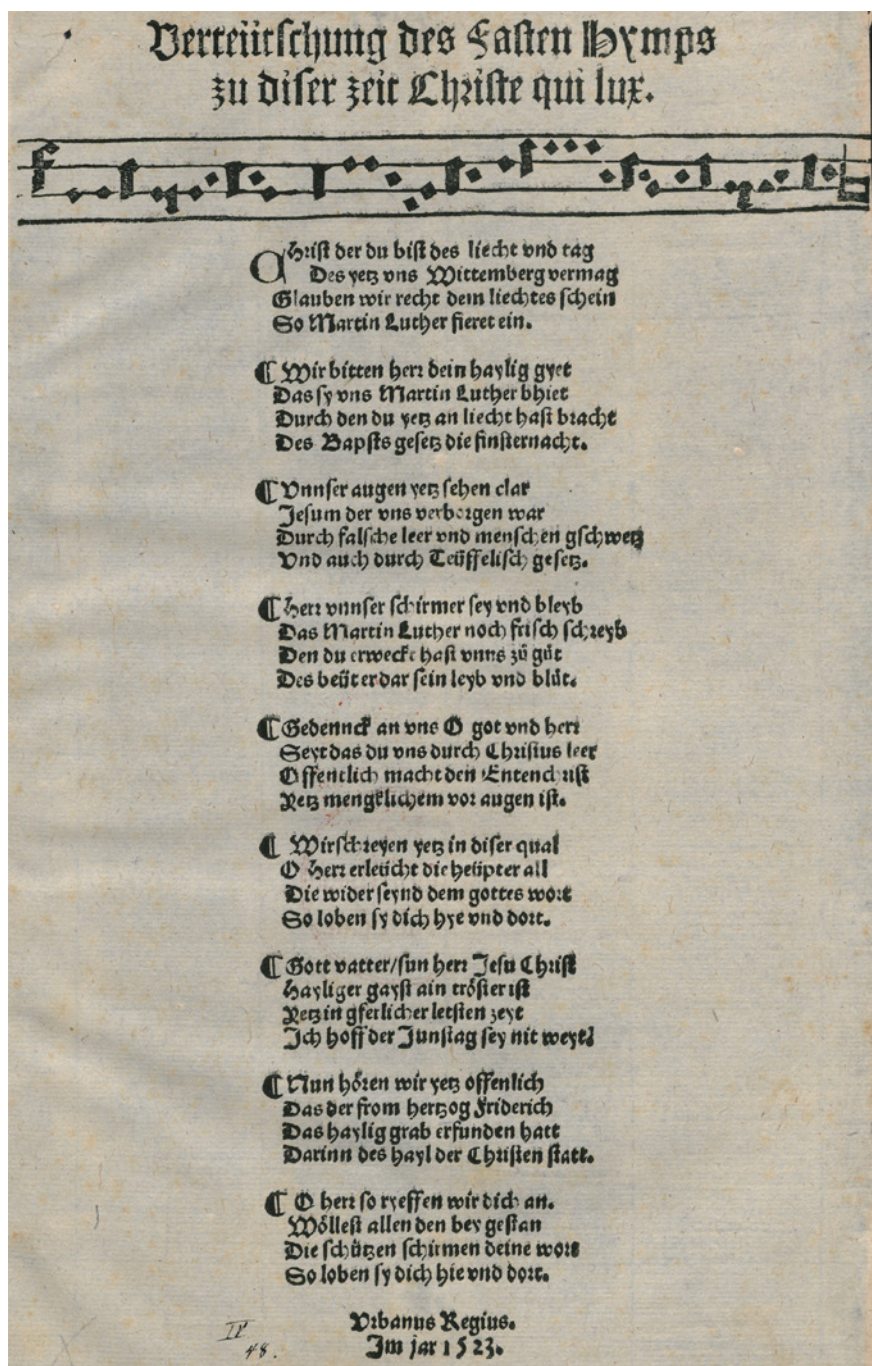 Verteütschung des Fasten Hymps
zu diser zeit Christe qui lux.
CHrist der du bist des liecht vnd tag
Des yetz vns Wittemberg vermag
Glauben wir recht dem liechtes schein
So Martin Luther fieret ein.
¶ Wir bitten herr dein haylig gyet
Das sy vns Martin Luther bhiet
Durch den du yetz an liecht hast bracht
Des Bapsts gesetz die finsternacht.
¶ Vnnser augen yetz sehen clar
Jesum der vns verborgen war
Durch falsche leer vnd menschen gschwetz
Vnd auch durch Teüffelisch gesetz.
¶ Herr vnnser schirmer sey vnd bleyb
Das Martin Luther noch frisch schreyb
Den du erweckt hast vnns zů gůt
Des beüt er dar sein leyb vnd blůt.
¶ Gedennck an vns O got vnd herr
Seyt das du vns durch Christus leer
Offentlich macht den Entenchrist
Yetz mengklichem vor augen ist.
¶ Wir schreyen yetz in diser qual
O Herr erleücht die heüpter all
Die wider seynd dem gottes wort
So loben sy dich hye vnd dort.
¶ Gott vatter/sun herr Jesu Christ
Hayliger gayst ain tröster ist
Yetz in gferlicher letsten zeyt
Ich hoff der Junstag sey nit weyt.
¶ Nun hören wir yetz offenlich
Das der from hertzog Friderich
Das haylig grab erfunden hatt
Darinn des hayl der Christen statt.
¶ O herr so ryeffen wir dich an.
Wöllest allen den bey gestan
Die schützen schirmen deine wort
So loben sy dich hie vnd dort.
Vrbanus Regius.
Im jar 1523.
48.